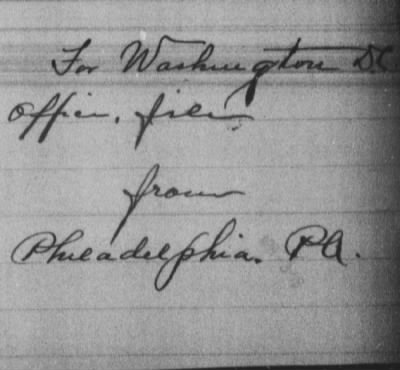 For Washington D.C.
Office, files
from
Philadelphia. Pa.